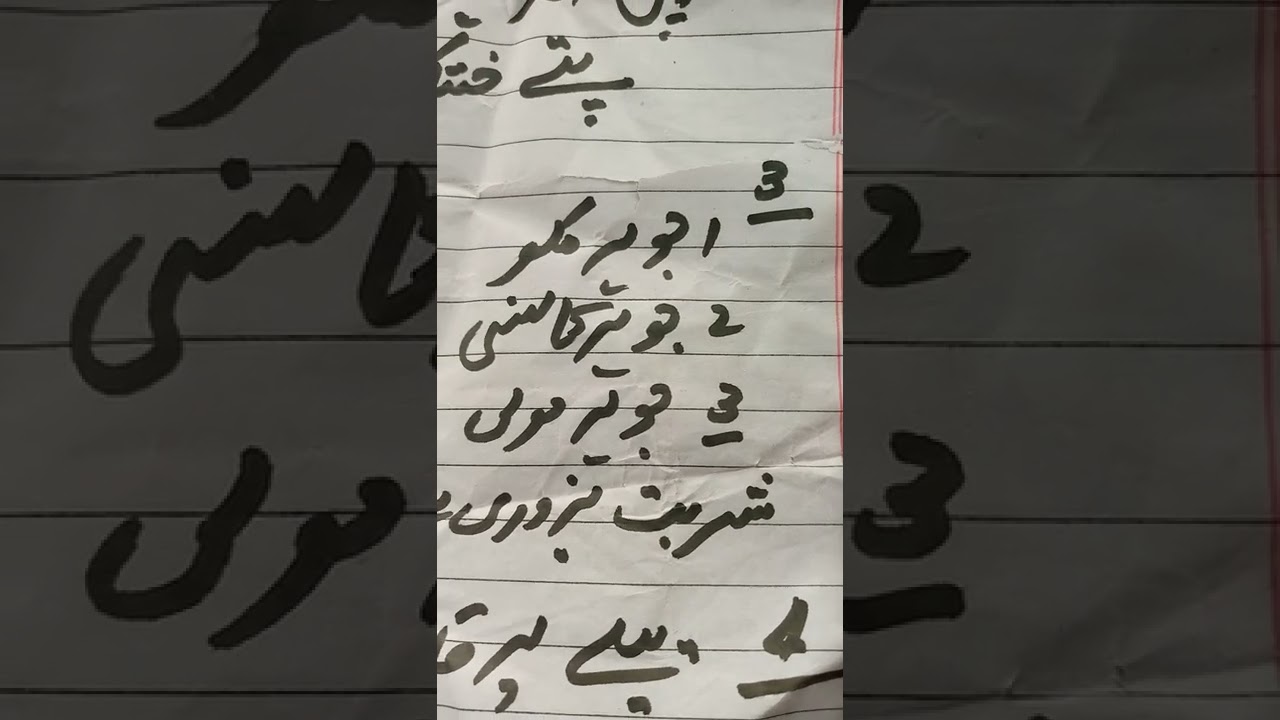 پتے
3
1 جوہر مکو
2 جوہر کاسنی
3 جوہر مولی
شربت بزوری
4 پیلے